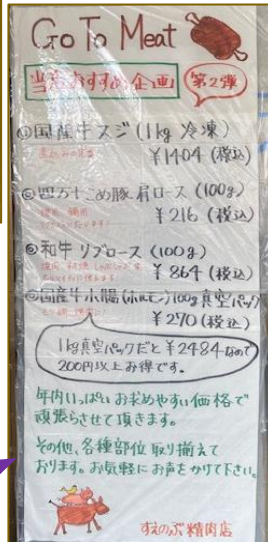 Go To Meat
当店おすすめ企画 第2弾
①国産牛スジ(1kg 冷凍)
¥1404 (税込)
②四万十こめ豚 肩ロース (100g)
¥216 (税込)
③和牛リブロース (100g)
¥864 (税込)
④国産牛小腸(ホルモン)100g真空パック
¥270 (税込)
1kg真空パックだと¥2484なので
200円以上お得です。
年内いっぱいお求めやすい価格で
頑張らせて頂きます。
その他、各種部位取り揃えて
おります。お気軽にお声をかけて下さい。
すえのぶ精肉店